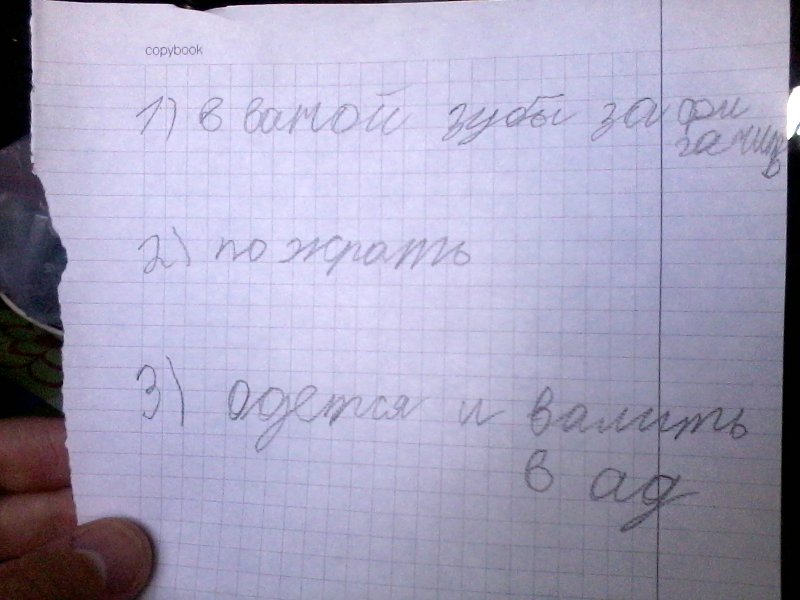 copybook
1) в ваной зубы зафи
гачить
2) пожрать
3) одется и валить
в ад